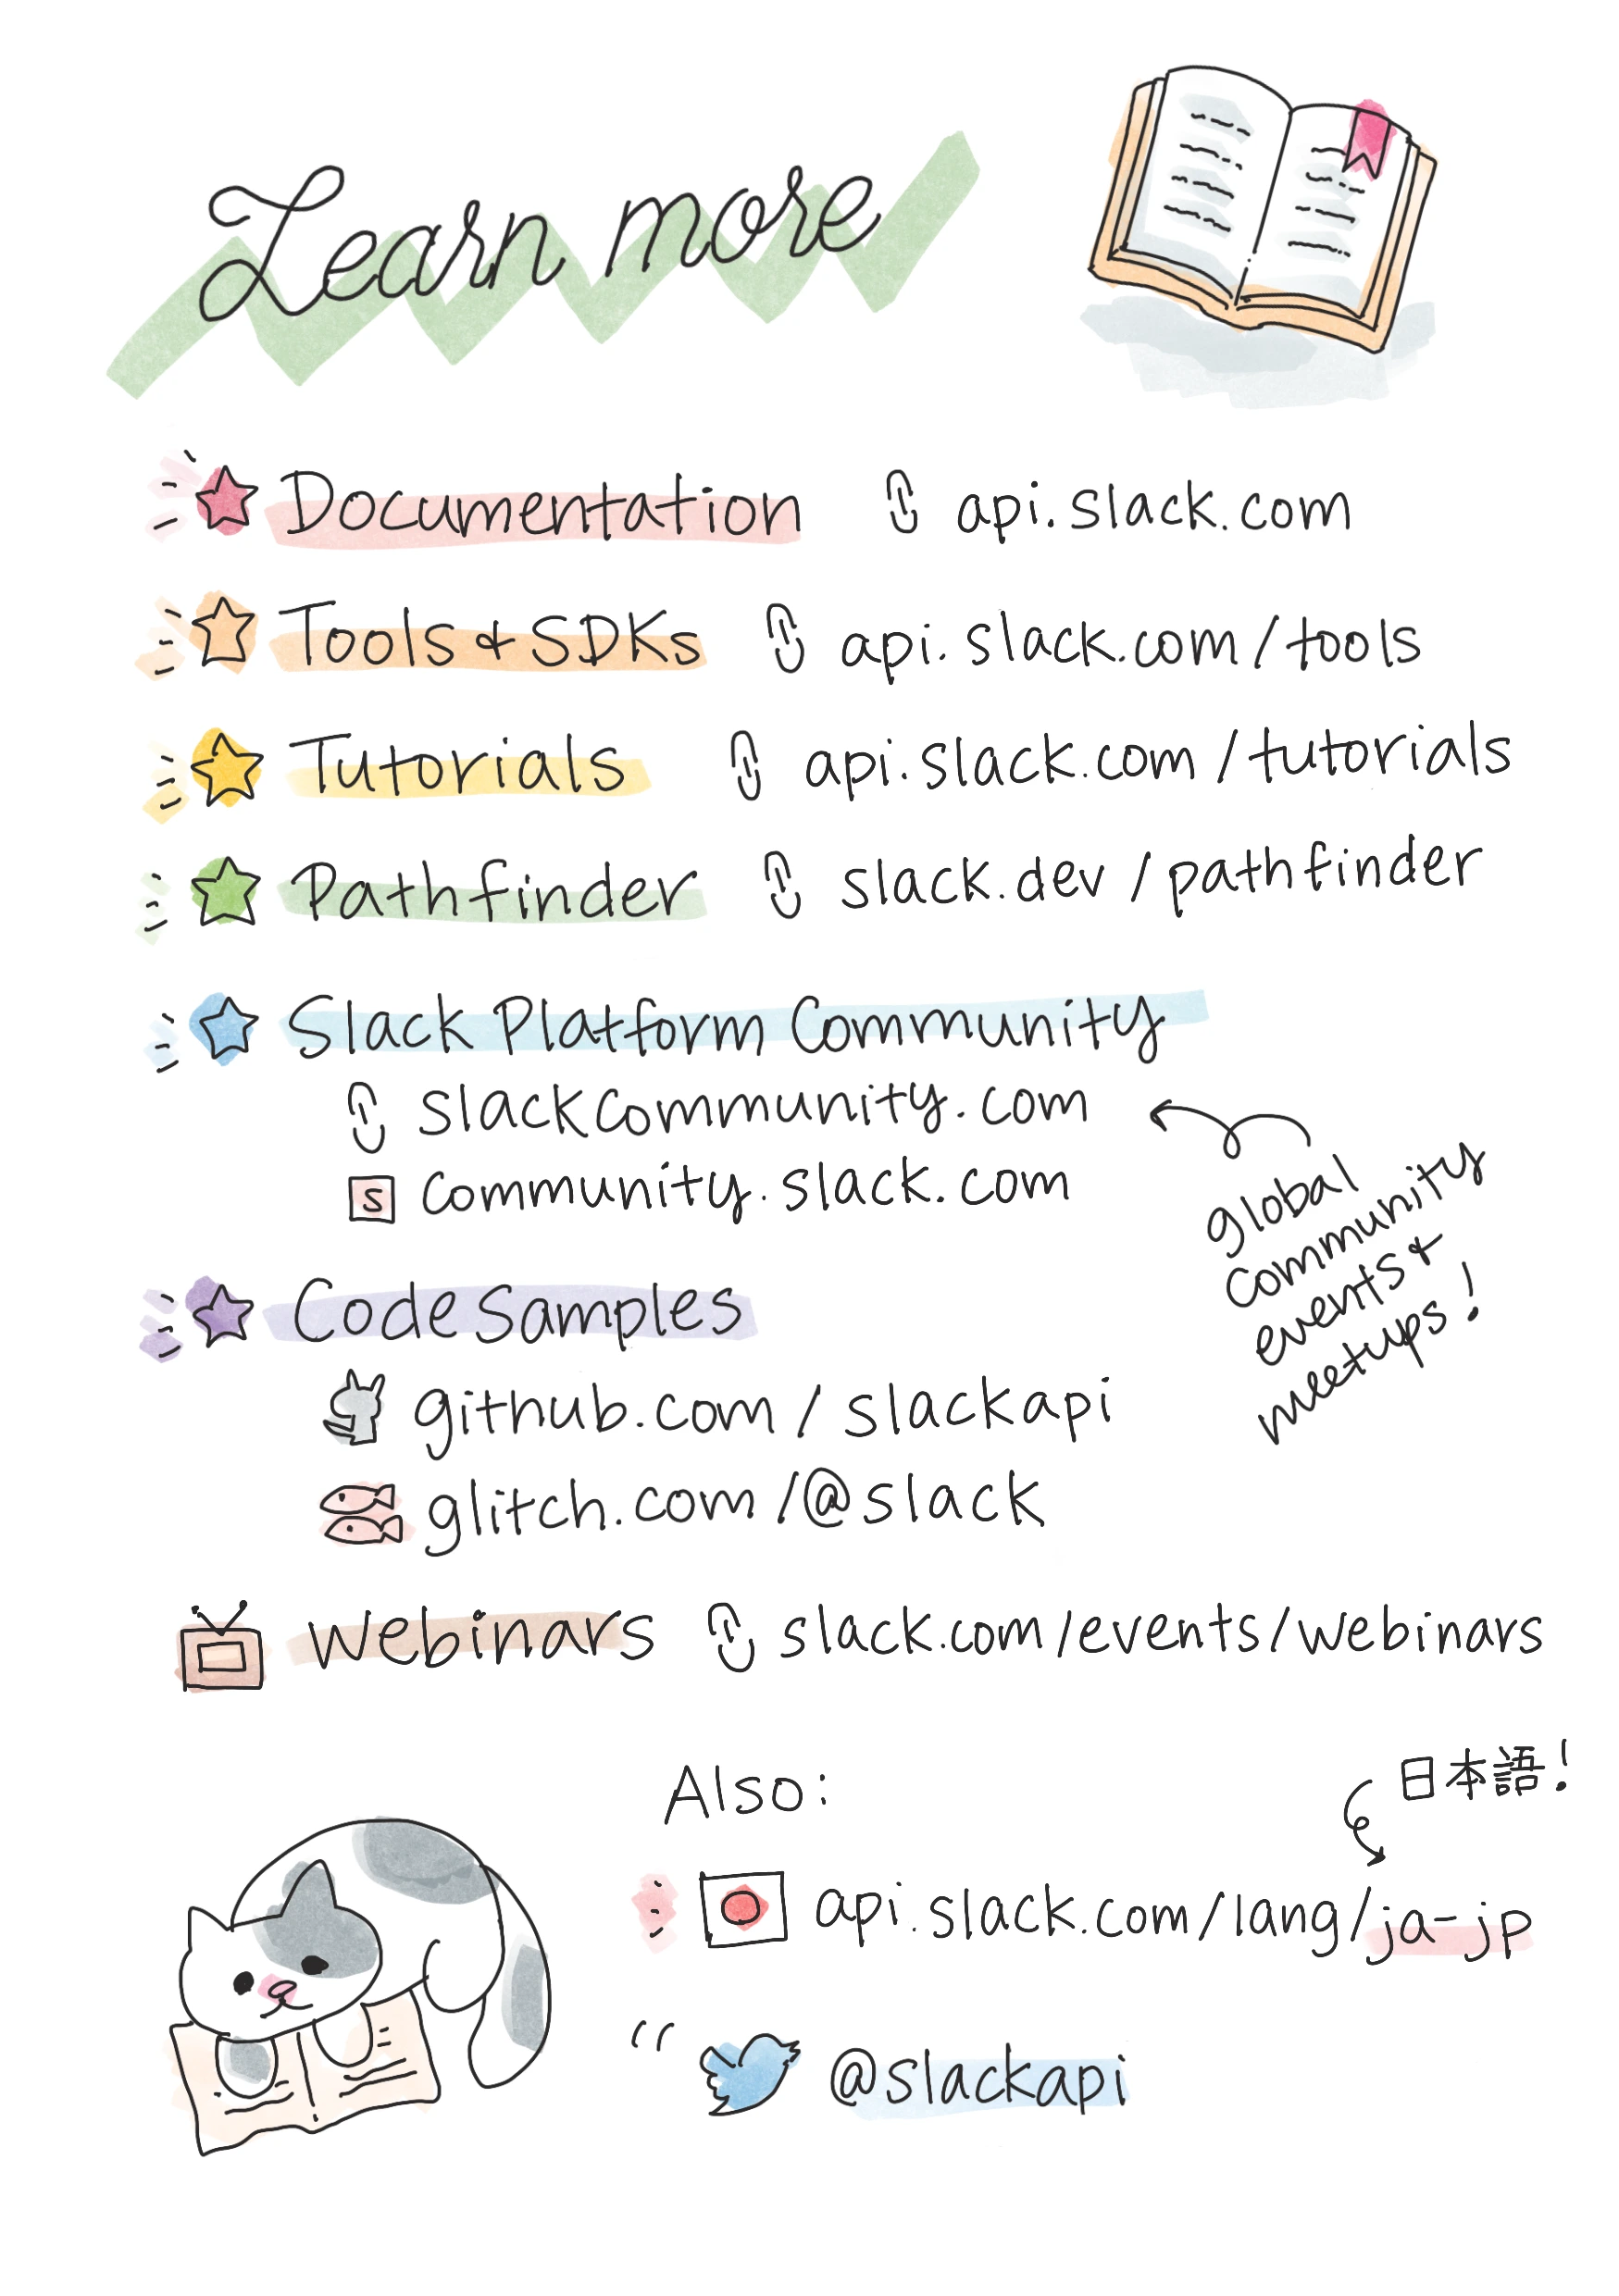 Learn more
Documentation api.slack.com
Tools & SDKs api.slack.com/tools
Tutorials api.slack.com/tutorials
Pathfinder slack.dev/pathfinder
Slack Platform Community
slackcommunity.com
S community.slack.com
global
community
events &
meetups!
Code Samples
github.com/slackapi
glitch.com/@slack
Webinars slack.com/events/webinars
Also:
日本語!
api.slack.com/lang/ja-jp
@slackapi